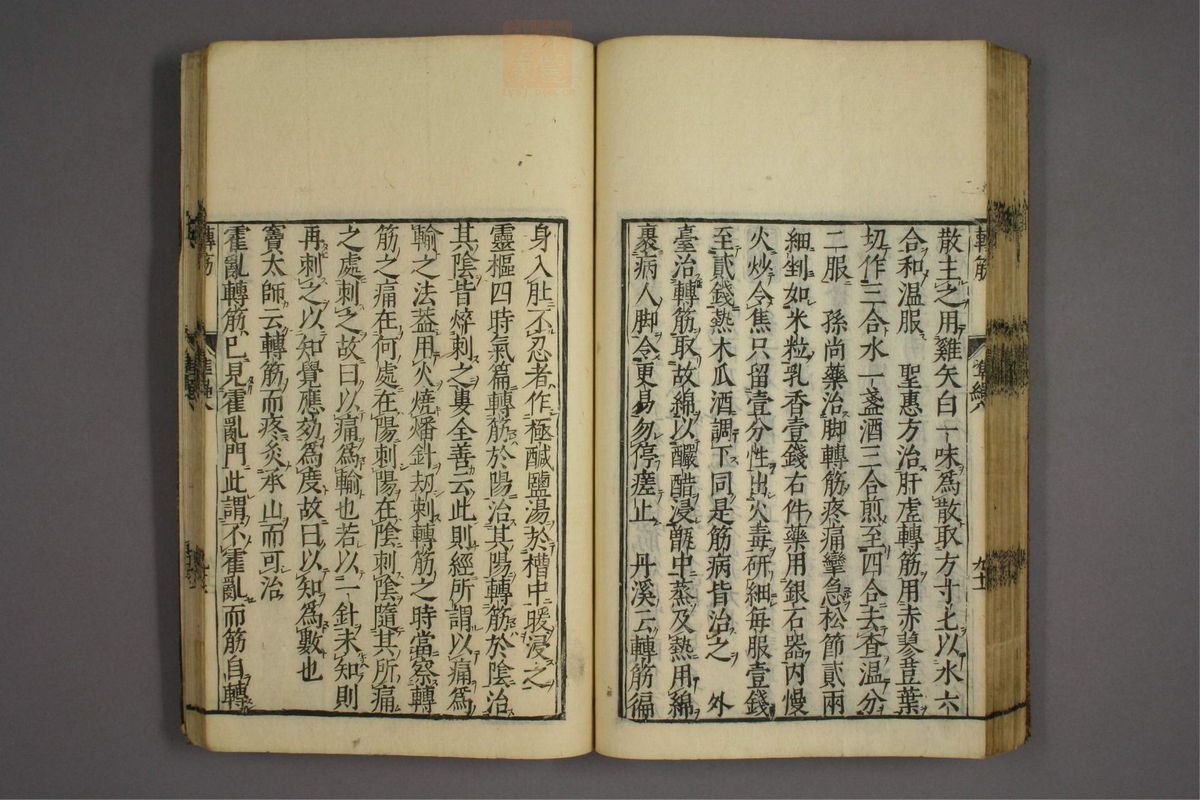 散主之用雞矢白一味爲散取方寸匕以水六
合和温服　聖惠方治肝虛轉筋用赤蓼莖葉
切作三合水一盞酒三合煎至四合去査温分
二服　孫尚藥治脚轉筋疼痛攣急松節貳兩
細剉如米粒乳香壹錢右件藥用銀石器内慢
火炒令焦只留壹分性出火毒研細每服壹錢
至貳錢熱木瓜酒調下同是筋病皆治之　外
臺治轉筋取故綿以釅醋浸甑中蒸及熱用綿
裹病人脚令更易勿停瘥止　丹溪云轉筋徧
身入肚不忍者作極醎鹽湯於槽中暖浸之
靈樞四時氣篇轉筋於陽治其陽轉筋於陰治
其陰皆焠刺之婁全善云此則經所謂以痛爲
輸之法蓋用火燒燔針刼刺轉筋之時當察轉
筋之痛在何處在陽刺陽在陰刺陰隨其所痛
之處刺之故曰以痛爲輸也若以一針未知則
再刺之以知覺應効爲度故曰以知爲數也
竇太師云轉筋而疼灸承山而可治
霍亂轉筋已見霍亂門此謂不霍亂而筋自轉
轉筋
準繩八